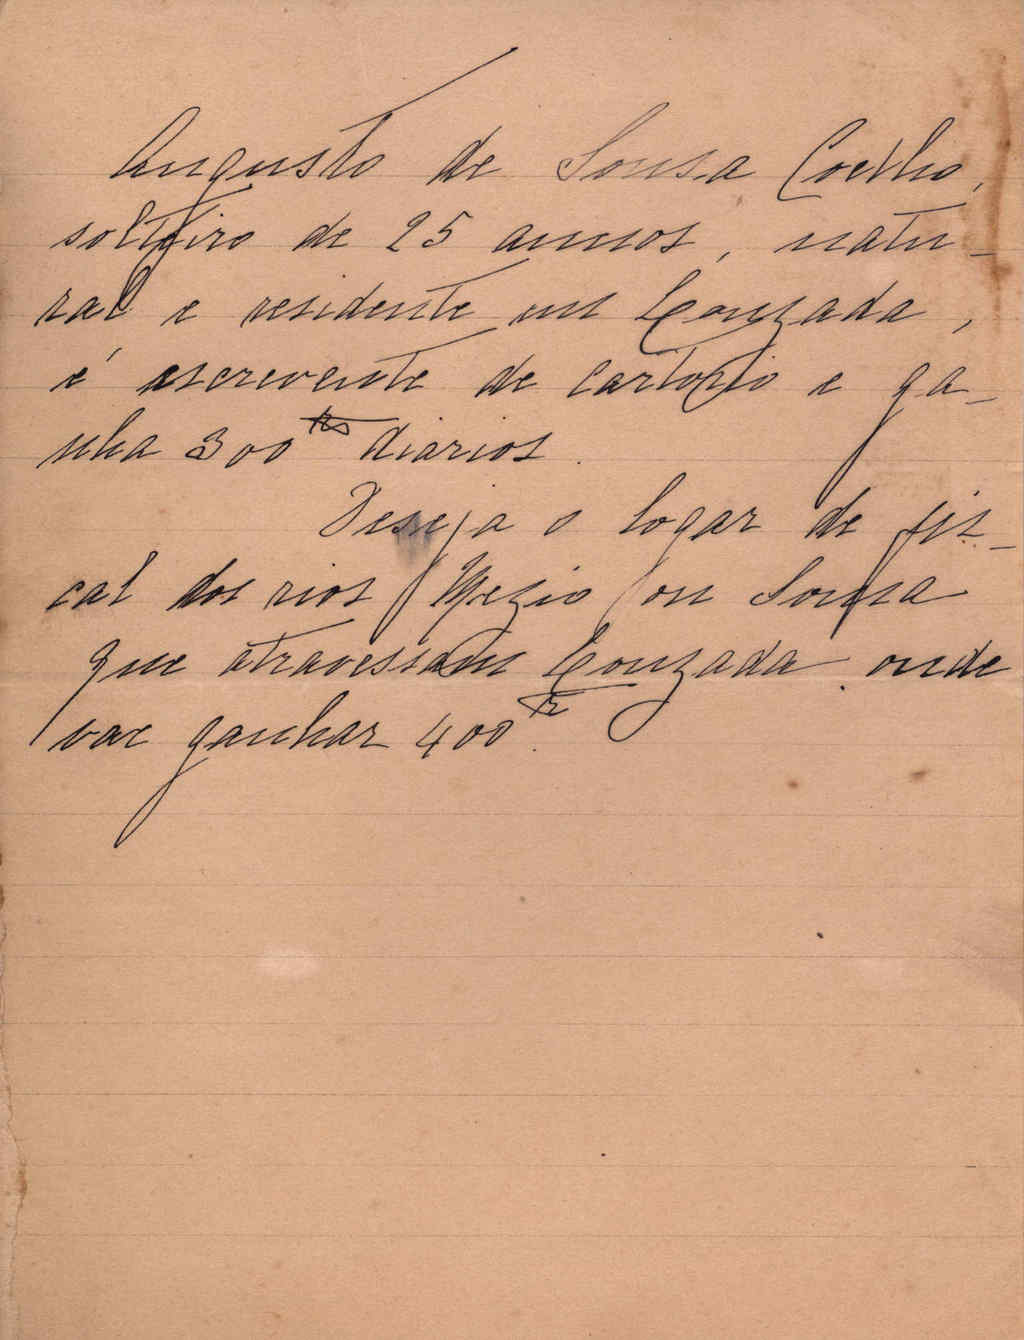 Augusto de Sousa Coelho,
solteiro de 25 annos, natu-
ral e residente em Louzada,
é escrevente de cartorio e ga-
nha 300 rs diarios.
Deseja o logar de fis-
cal dos rios Mezio ou Sousa
que atravessam Louzada onde
vae ganhar 400 rs.